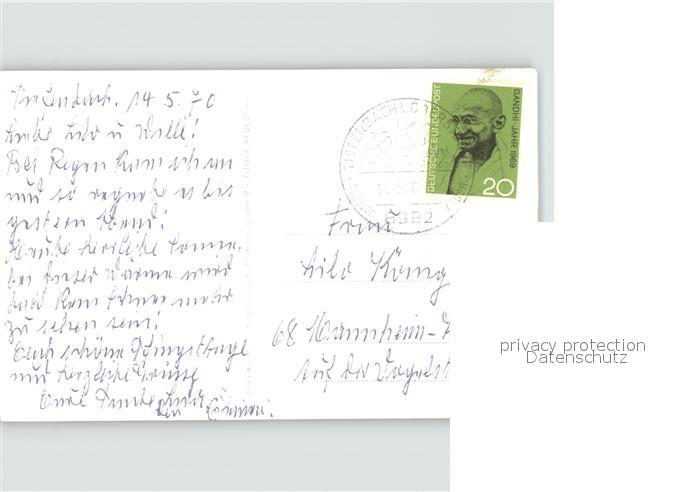 Tiefenbach, 14 5. 70
Liebe Lilo u Willi!
Bei Regen kam ich an
und so regnete es bis
gestern Abend!
Heute herrliche Sonne,
bei dieser Wärme wird
bald kein Schnee mehr
zu sehen sein!
Euch schöne Pfingsttage
und herzliche Grüsse
Eure Tante
TIEFENBACH
8982
DEUTSCHE BUNDESPOST
GANDHI-JAHR 1969
20
Frau
Lilo König
68 Mannheim-
Auf der Vogelst
privacy protection
Datenschutz